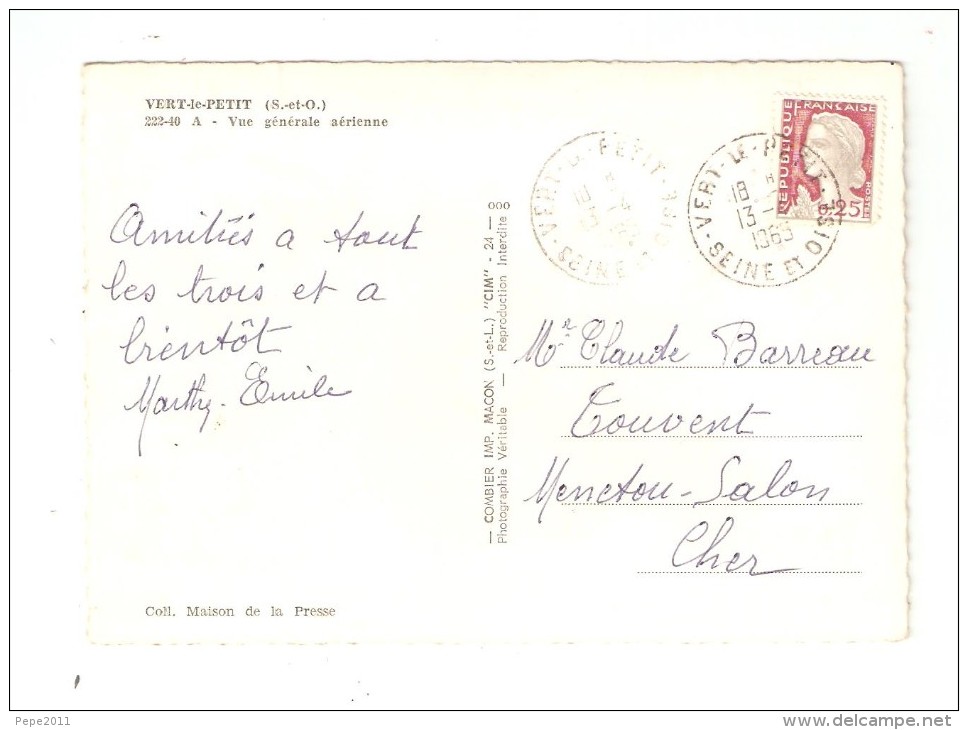 VERT-le-PETIT (S.-et-O.)
222-40 A - Vue générale aérienne
Amitiés a tout
les trois et a
bientôt
Marthe. Emile
Coll. Maison de la Presse
— COMBIER IMP. MACON (S.-et-L.) "CIM" - 24 — ooo
Photographie Véritable — Reproduction Interdite
VERT-LE-PETIT
SEINE
REPUBLIQUE FRANÇAISE
0,25
VERT-LE-PETIT
18 H
13 -
1963
SEINE ET OISE
Mr Claude Barreau
Touvent
Menetou-Salon
Cher
Pepe2011
www.delcampe.net